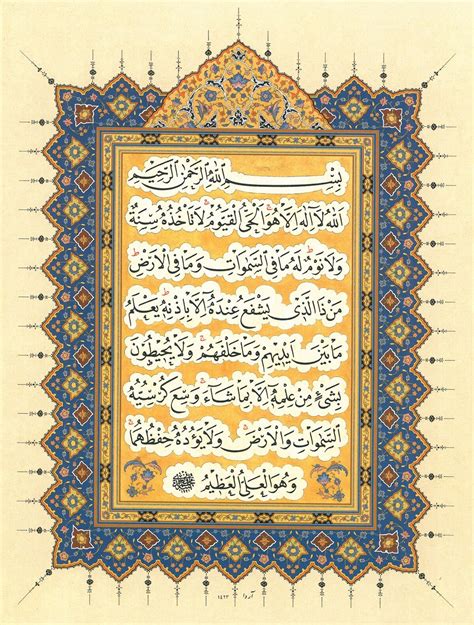 بِسْمِ ٱللَّهِ ٱلرَّحْمَٰنِ ٱلرَّحِيمِ
ٱللَّهُ لَا إِلَٰهَ إِلَّا هُوَ ٱلْحَىُّ ٱلْقَيُّومُ لَا تَأْخُذُهُ سِنَةٌ
وَلَا نَوْمٌ لَهُ مَا فِى ٱلسَّمَٰوَاتِ وَمَا فِى ٱلْأَرْضِ
مَنْ ذَا ٱلَّذِى يَشْفَعُ عِنْدَهُ إِلَّا بِإِذْنِهِ يَعْلَمُ
مَا بَيْنَ أَيْدِيهِمْ وَمَا خَلْفَهُمْ وَلَا يُحِيطُونَ
بِشَىْءٍ مِنْ عِلْمِهِ إِلَّا بِمَا شَاءَ وَسِعَ كُرْسِيُّهُ
ٱلسَّمَٰوَاتِ وَٱلْأَرْضَ وَلَا يَؤُدُهُ حِفْظُهُمَا
وَهُوَ ٱلْعَلِىُّ ٱلْعَظِيمُ
١٤٢٣